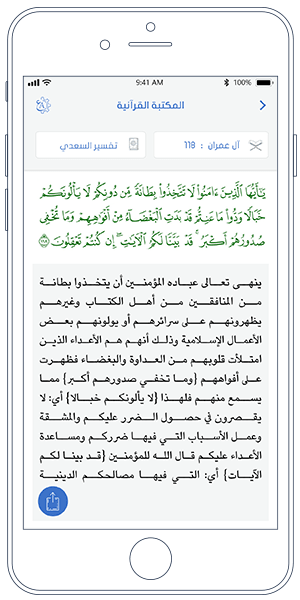 9:41 AM 100%
المكتبة القرآنية
آل عمران : 118 تفسير السعدي
يَـٰٓأَيُّهَا ٱلَّذِينَ ءَامَنُوا۟ لَا تَتَّخِذُوا۟ بِطَانَةً مِّن دُونِكُمْ لَا يَأْلُونَكُمْ
خَبَالًا وَدُّوا۟ مَا عَنِتُّمْ قَدْ بَدَتِ ٱلْبَغْضَآءُ مِنْ أَفْوَٰهِهِمْ وَمَا تُخْفِى
صُدُورُهُمْ أَكْبَرُ ۚ قَدْ بَيَّنَّا لَكُمُ ٱلْـَٔايَـٰتِ ۖ إِن كُنتُمْ تَعْقِلُونَ ﴿١١٨﴾
ينهى تعالى عباده المؤمنين أن يتخذوا بطانة
من المنافقين من أهل الكتاب وغيرهم
يظهرونهم على سرائرهم أو يولونهم بعض
الأعمال الإسلامية وذلك أنهم هم الأعداء الذين
امتلأت قلوبهم من العداوة والبغضاء فظهرت
على أفواههم {وما تخفي صدورهم أكبر} مما
يسمع منهم فلهذا {لا يألونكم خبالا} أي: لا
يقصرون في حصول الضرر عليكم والمشقة
وعمل الأسباب التي فيها ضرركم ومساعدة
الأعداء عليكم قال الله للمؤمنين {قد بينا لكم
الآيات} أي: التي فيها مصالحكم الدينية